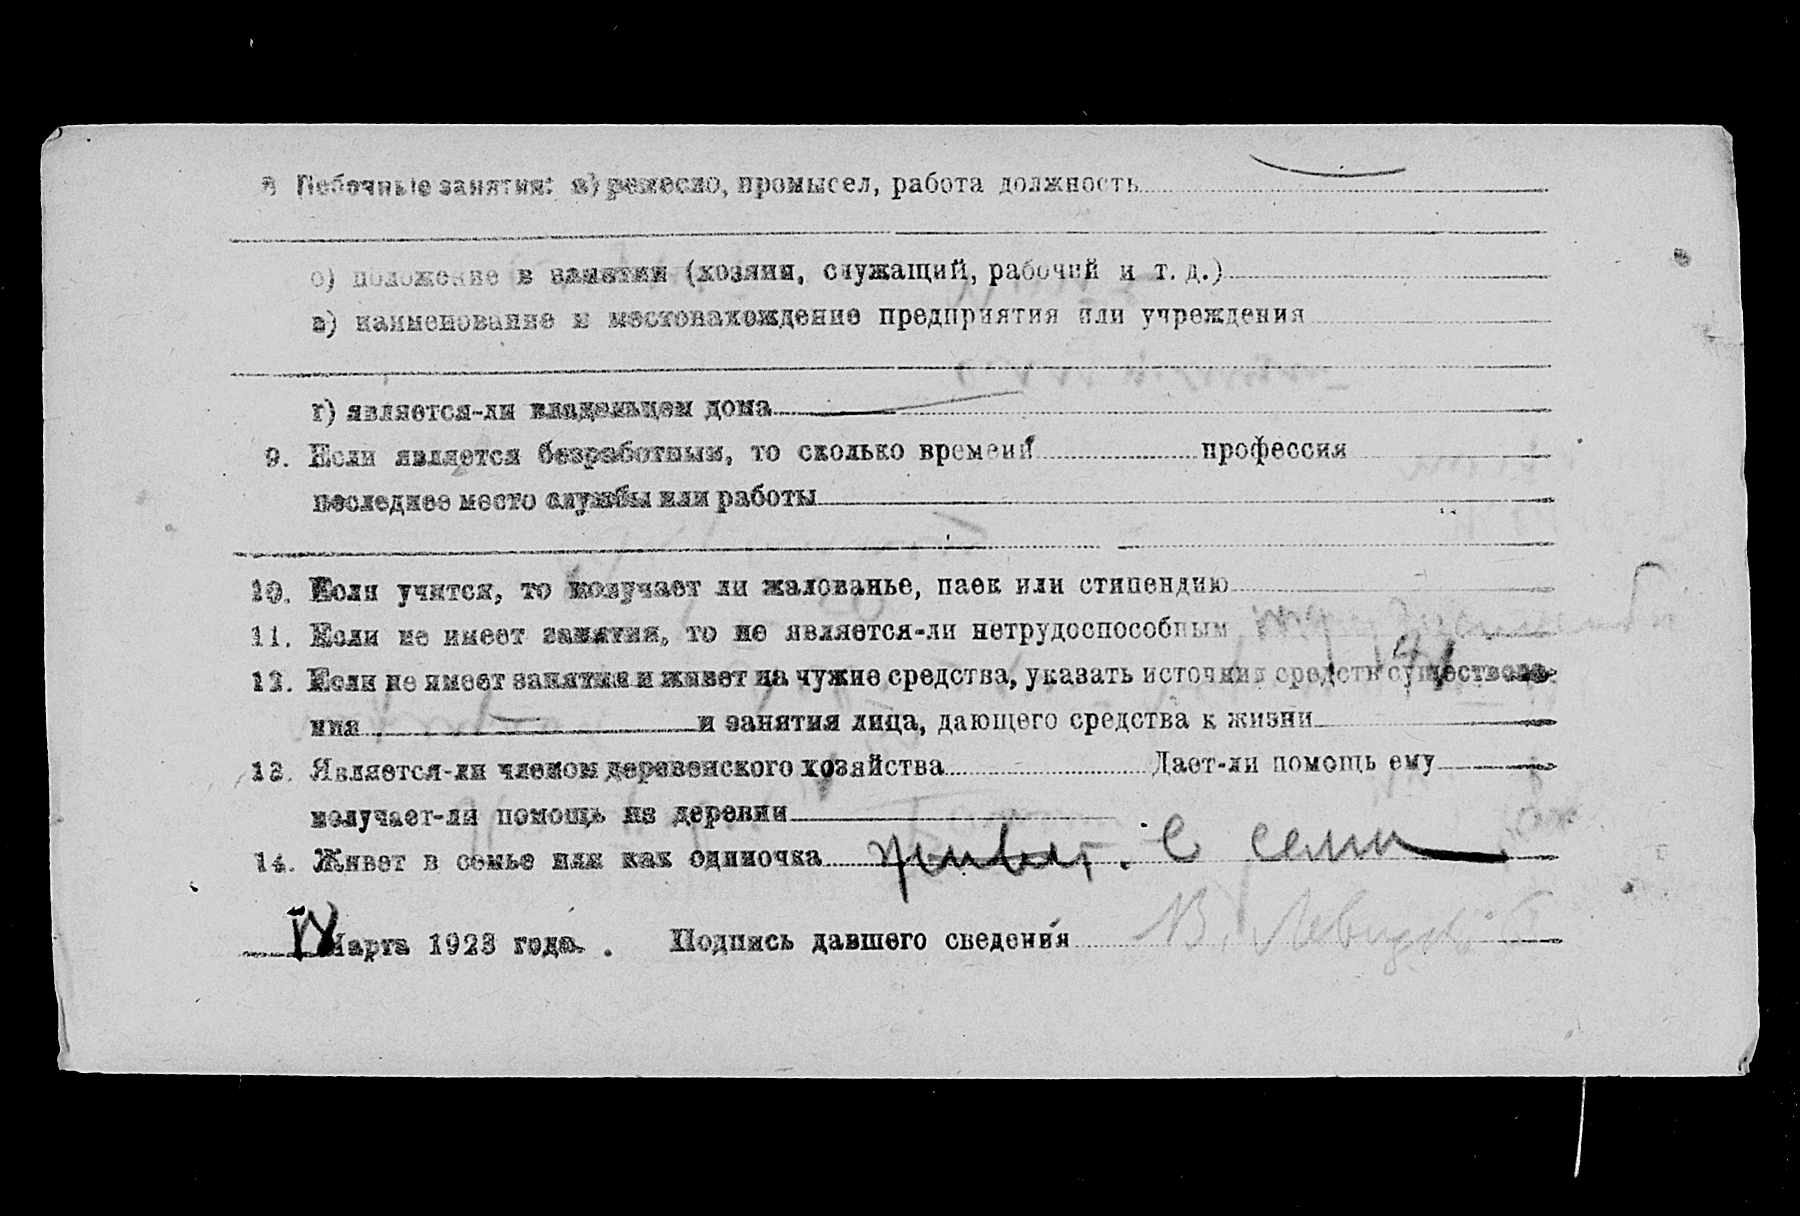 8 Побочные занятия: а) ремесло, промысел, работа должность
б) положение в занятии (хозяин, служащий, рабочий и т. д.)
в) наименование и местонахождение предприятия или учреждения
г) является-ли владельцем дома
9. Если является безработным, то сколько времени профессия
последнее место службы или работы
10. Если учится, то получает ли жалованье, паек или стипендию
11. Если не имеет занятия, то не является-ли нетрудоспособным
12. Если не имеет занятия и живет на чужие средства, указать источник средств существова-
ния и занятия лица, дающего средства к жизни
13. Является-ли членом деревенского хозяйства Дает-ли помощь ему
получает-ли помощь из деревни
14. Живет в семье или как одиночка живет. С семи
Марта 1923 года. Подпись давшего сведения В.